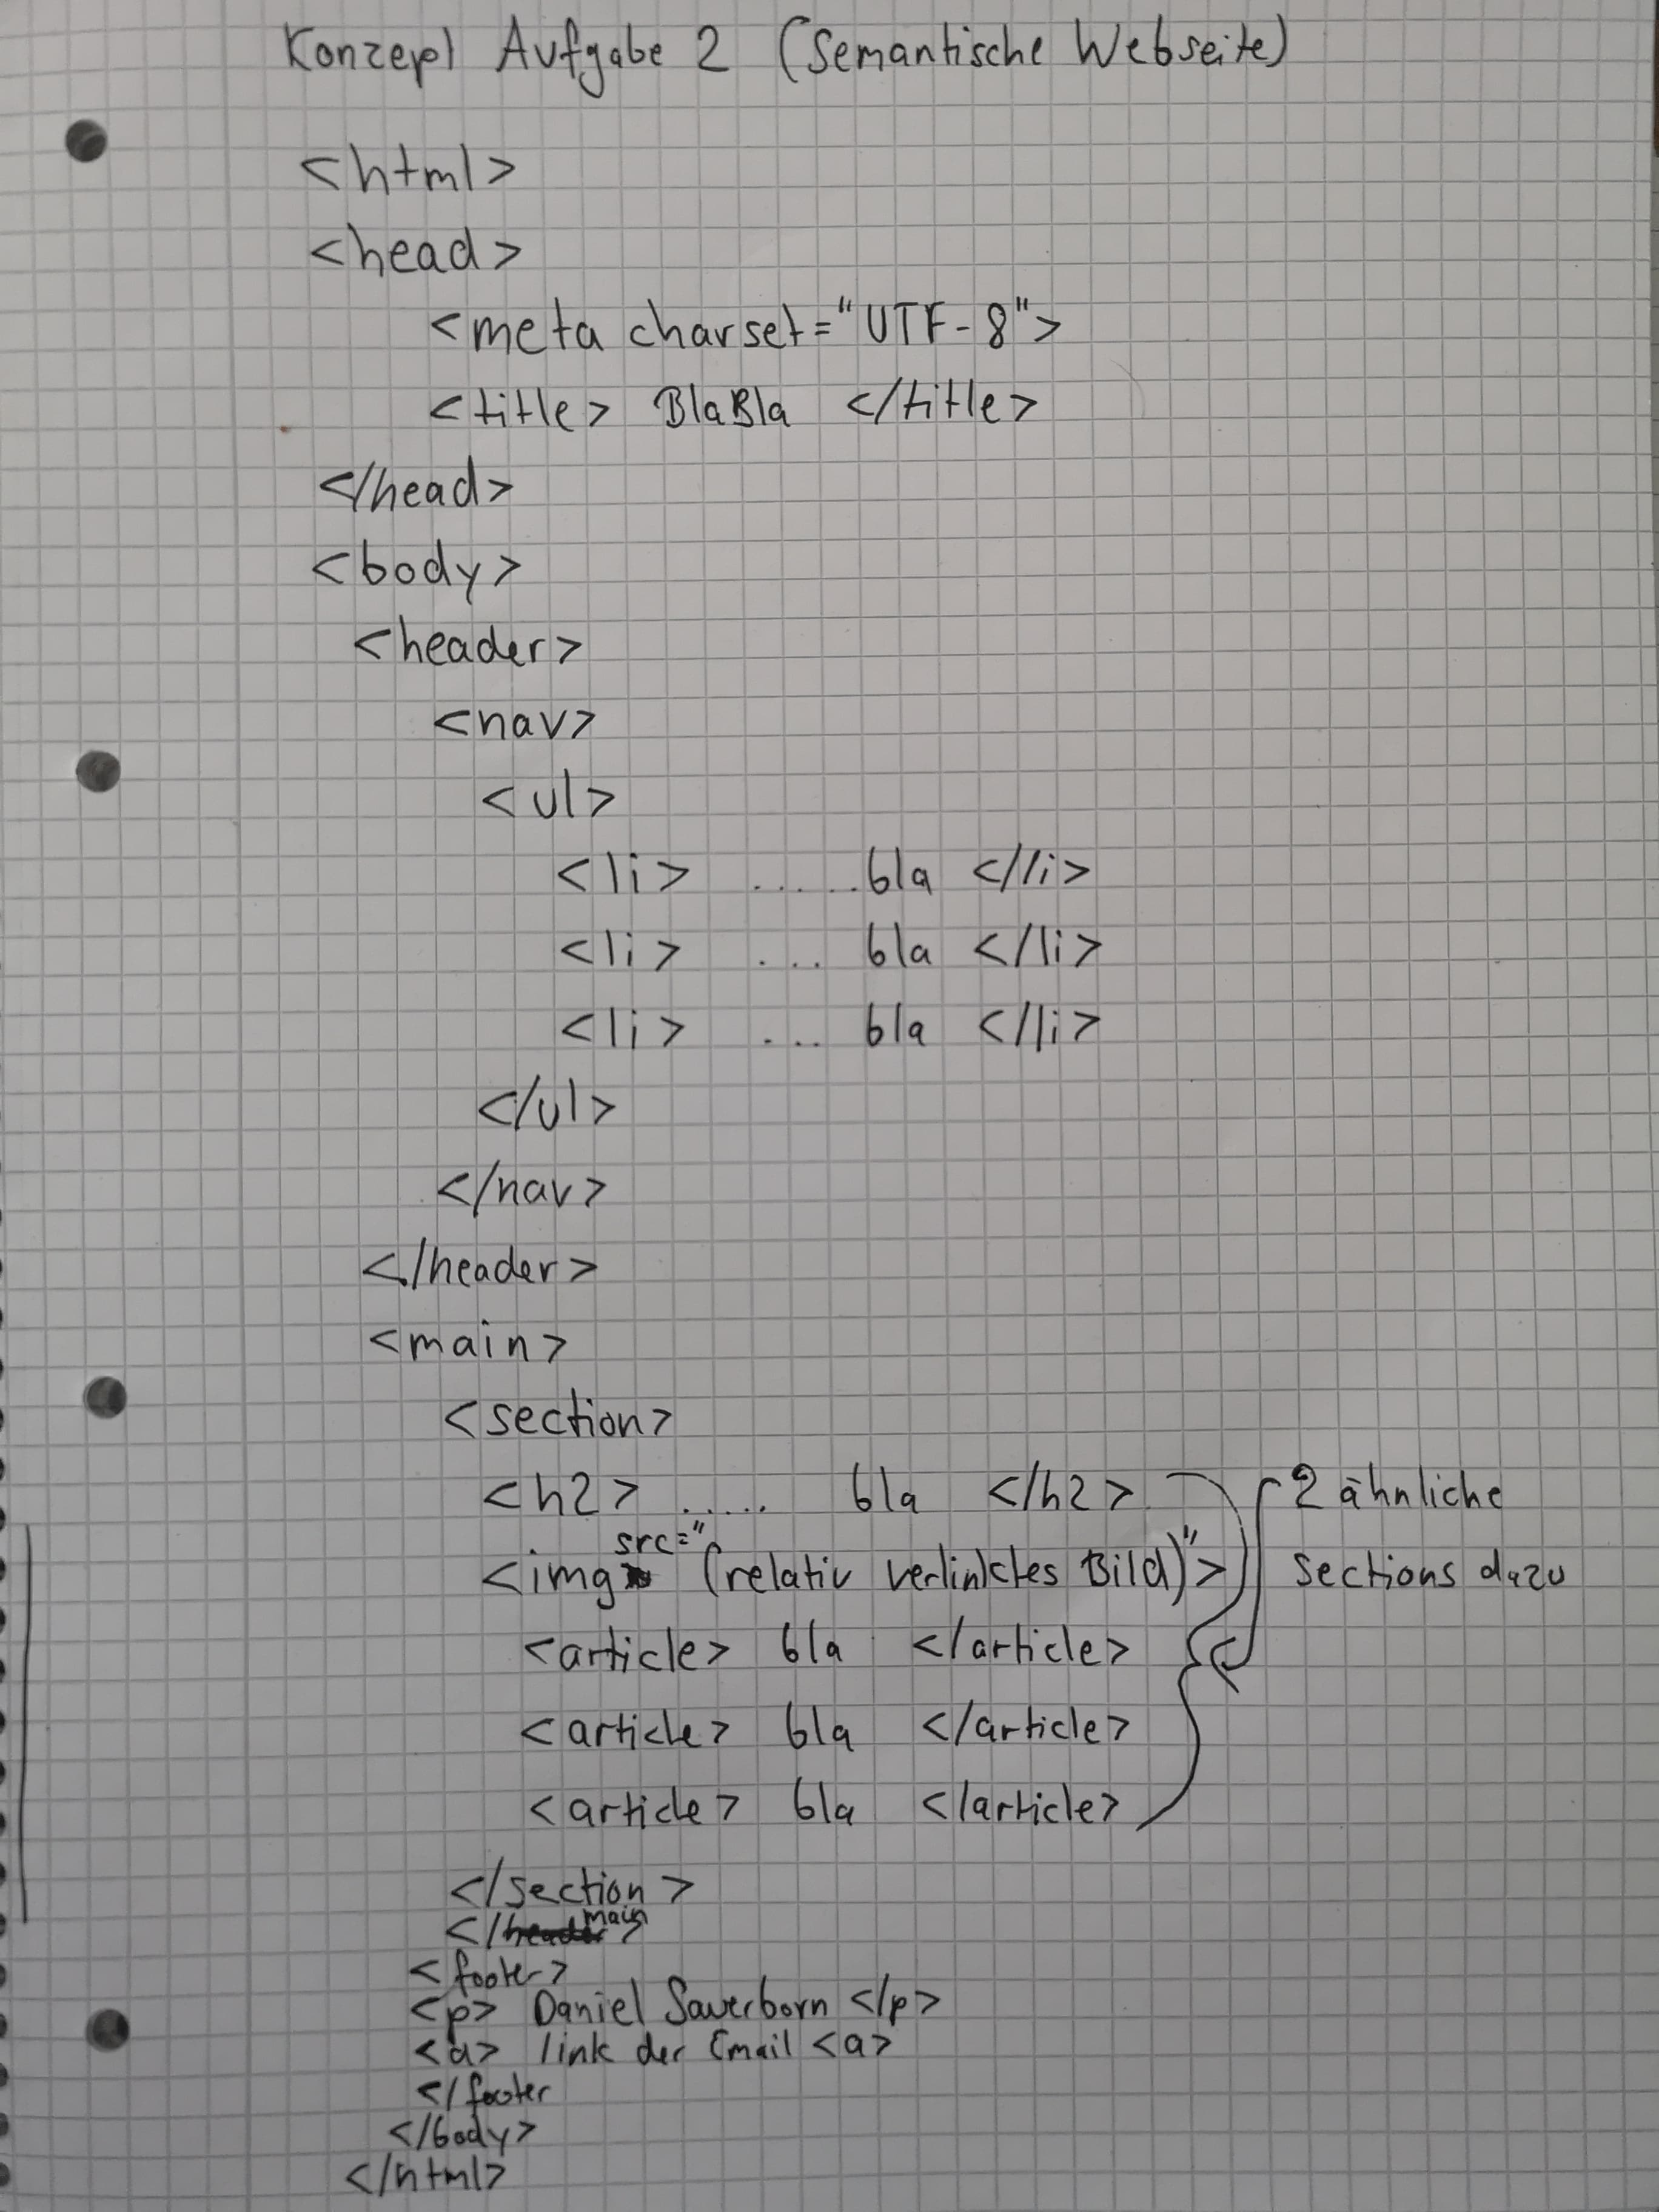 Konzept Aufgabe 2 (Semantische Webseite)
<html>
<head>
<meta charset="UTF-8">
<title> BlaBla </title>
</head>
<body>
<header>
<nav>
<ul>
<li> ...... bla </li>
<li> ... bla </li>
<li> ... bla </li>
</ul>
</nav>
</header>
<main>
<section>
<h2> ...... bla </h2>
<img src="(relativ verlinktes Bild)">
2 ähnliche
sections dazu
<article> bla </article>
<article> bla </article>
<article> bla </article>
</section>
</main>
<footer>
<p> Daniel Sauerborn </p>
<a> link der Email <a>
</footer
</body>
</html>